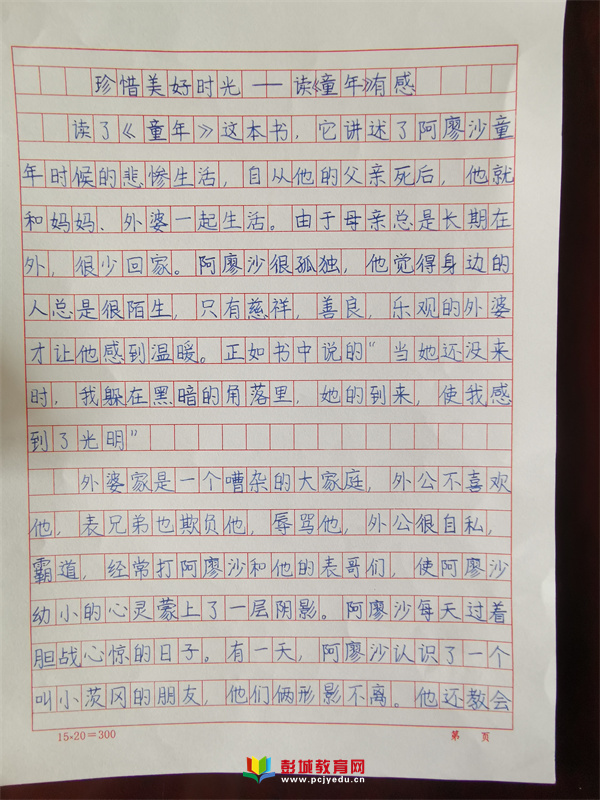 珍惜美好时光——读《童年》有感
读了《童年》这本书，它讲述了阿廖沙童
年时候的悲惨生活，自从他的父亲死后，他就
和妈妈、外婆一起生活。由于母亲总是长期在
外，很少回家。阿廖沙很孤独，他觉得身边的
人总是很陌生，只有慈祥，善良，乐观的外婆
才让他感到温暖。正如书中说的“当她还没来
时，我躲在黑暗的角落里，她的到来，使我感
到了光明”
外婆家是一个嘈杂的大家庭，外公不喜欢
他，表兄弟也欺负他，辱骂他，外公很自私，
霸道，经常打阿廖沙和他的表哥们，使阿廖沙
幼小的心灵蒙上了一层阴影。阿廖沙每天过着
胆战心惊的日子。有一天，阿廖沙认识了一个
叫小茨冈的朋友，他们俩形影不离。他还教会
15×20=300
第 页
彭城教育网
www.pcjyedu.cn